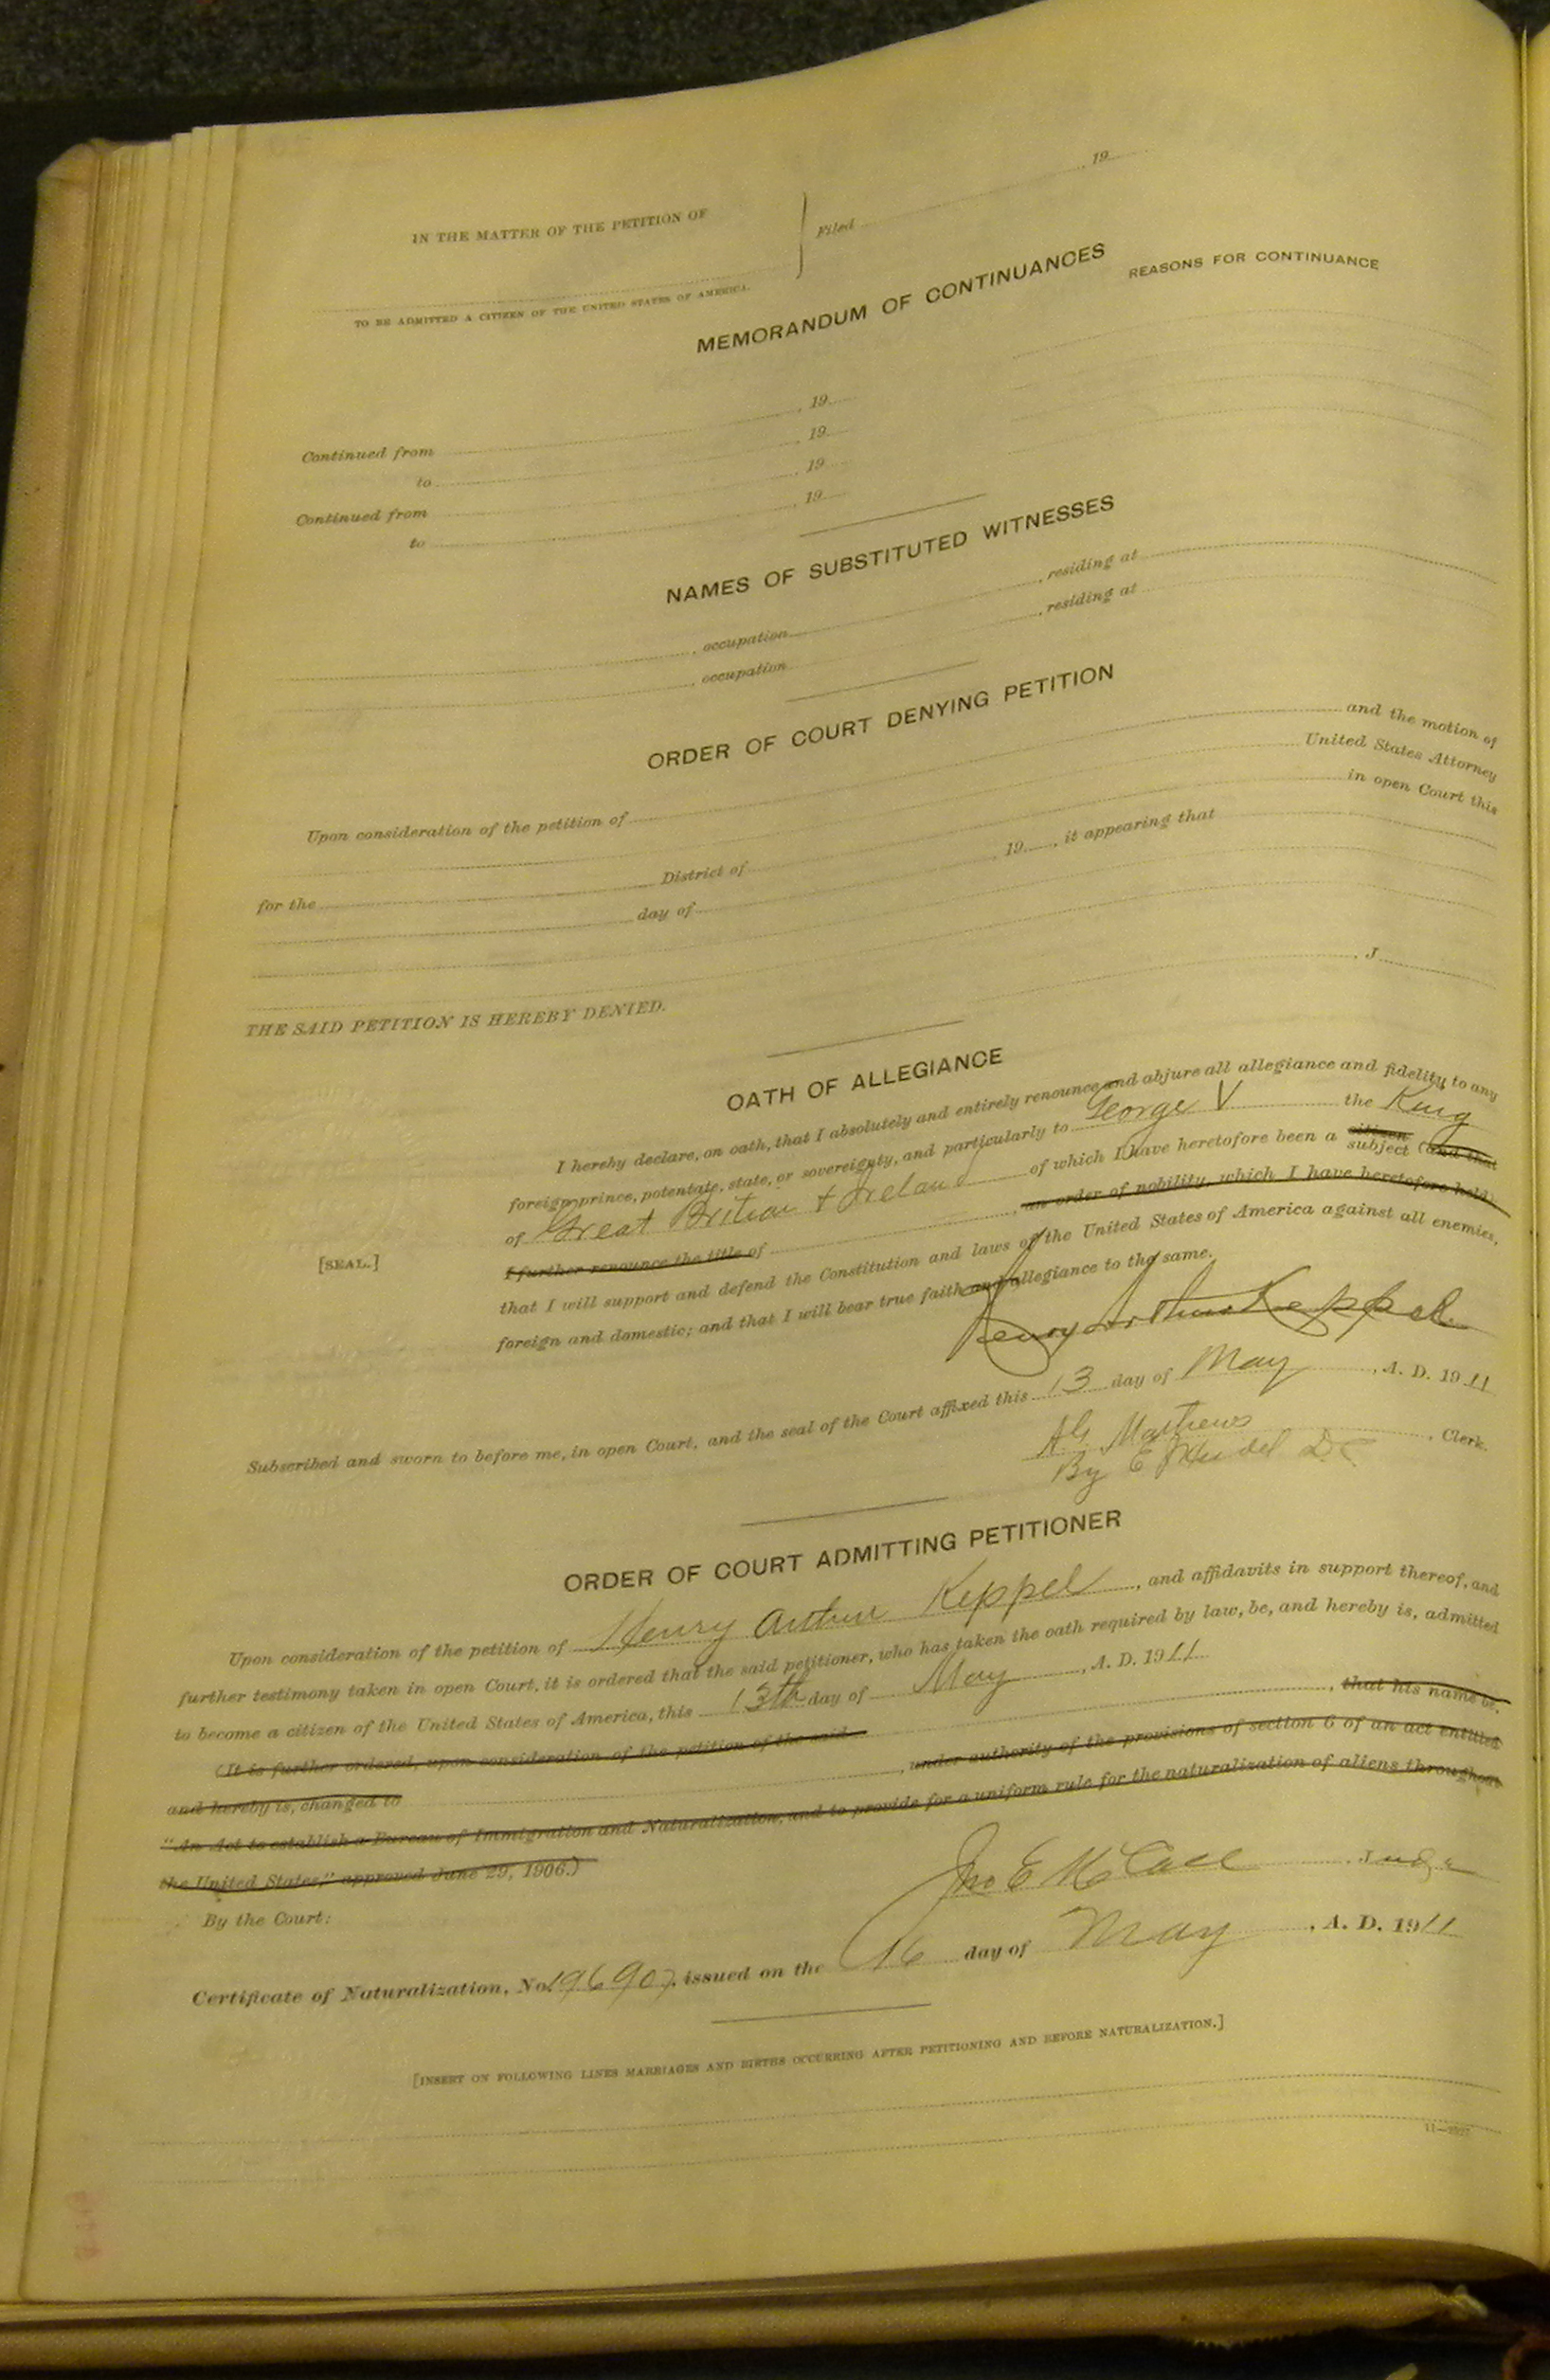 IN THE MATTER OF THE PETITION OF
Filed , 19
TO BE ADMITTED A CITIZEN OF THE UNITED STATES OF AMERICA.
MEMORANDUM OF CONTINUANCES
REASONS FOR CONTINUANCE
Continued from , 19
to , 19
Continued from , 19
to , 19
NAMES OF SUBSTITUTED WITNESSES
, occupation , residing at
, occupation , residing at
ORDER OF COURT DENYING PETITION
Upon consideration of the petition of and the motion of
United States Attorney
for the District of in open Court this
day of , 19 , it appearing that
THE SAID PETITION IS HEREBY DENIED.
, J
OATH OF ALLEGIANCE
I hereby declare, on oath, that I absolutely and entirely renounce and abjure all allegiance and fidelity to any
foreign prince, potentate, state, or sovereignty, and particularly to George V the King
of Great Britian + Ireland of which I have heretofore been a citizen subject (and that
I further renounce the title of , an order of nobility, which I have heretofore held)
[SEAL.]
that I will support and defend the Constitution and laws of the United States of America against all enemies,
foreign and domestic; and that I will bear true faith and allegiance to the same.
Henry Arthur Keppel
Subscribed and sworn to before me, in open Court, and the seal of the Court affixed this 13 day of May , A. D. 1911
Mathews , Clerk.
By E D C
ORDER OF COURT ADMITTING PETITIONER
Upon consideration of the petition of Henry Arthur Keppel , and affidavits in support thereof, and
further testimony taken in open Court, it is ordered that the said petitioner, who has taken the oath required by law, be, and hereby is, admitted
to become a citizen of the United States of America, this 13th day of May , A. D. 1911
(It is further ordered, upon consideration of the petition of the said , that his name be,
and hereby is, changed to , under authority of the provisions of section 6 of an act entitled
"An Act to establish a Bureau of Immigration and Naturalization, and to provide for a uniform rule for the naturalization of aliens throughout
the United States," approved June 29, 1906.)
By the Court:
Jno E McCall , Judge
Certificate of Naturalization, No. 196907, issued on the 16 day of May , A. D. 1911
[INSERT ON FOLLOWING LINES MARRIAGES AND BIRTHS OCCURRING AFTER PETITIONING AND BEFORE NATURALIZATION.]